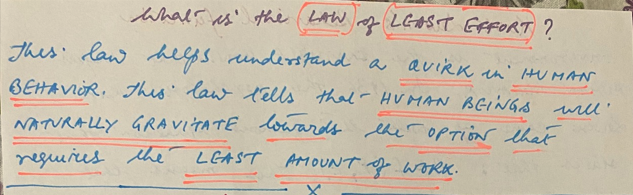 What is the LAW of LEAST EFFORT?
This law helps understand a QUIRK in HUMAN
BEHAVIOR. This law tells that HUMAN BEINGS will
NATURALLY GRAVITATE towards the OPTION that
requires the LEAST AMOUNT of WORK.
x